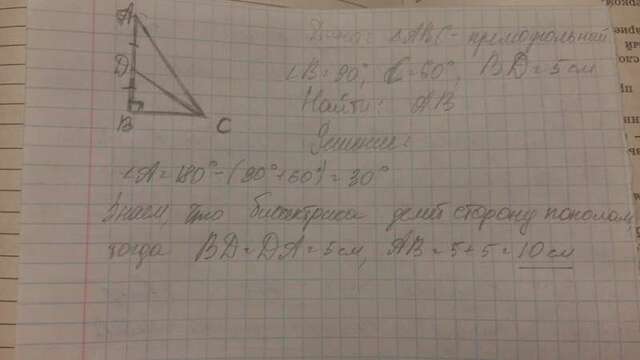 A
D
B
C
Дано: △ABC - прямоугольный
∠B = 90°, C = 60°, BD = 5 см
Найти: AB
Решение:
∠A = 180° - (90° + 60°) = 30°
Знаем, что биссектриса делит сторону пополам,
тогда BD = DA = 5 см, AB = 5 + 5 = 10 см